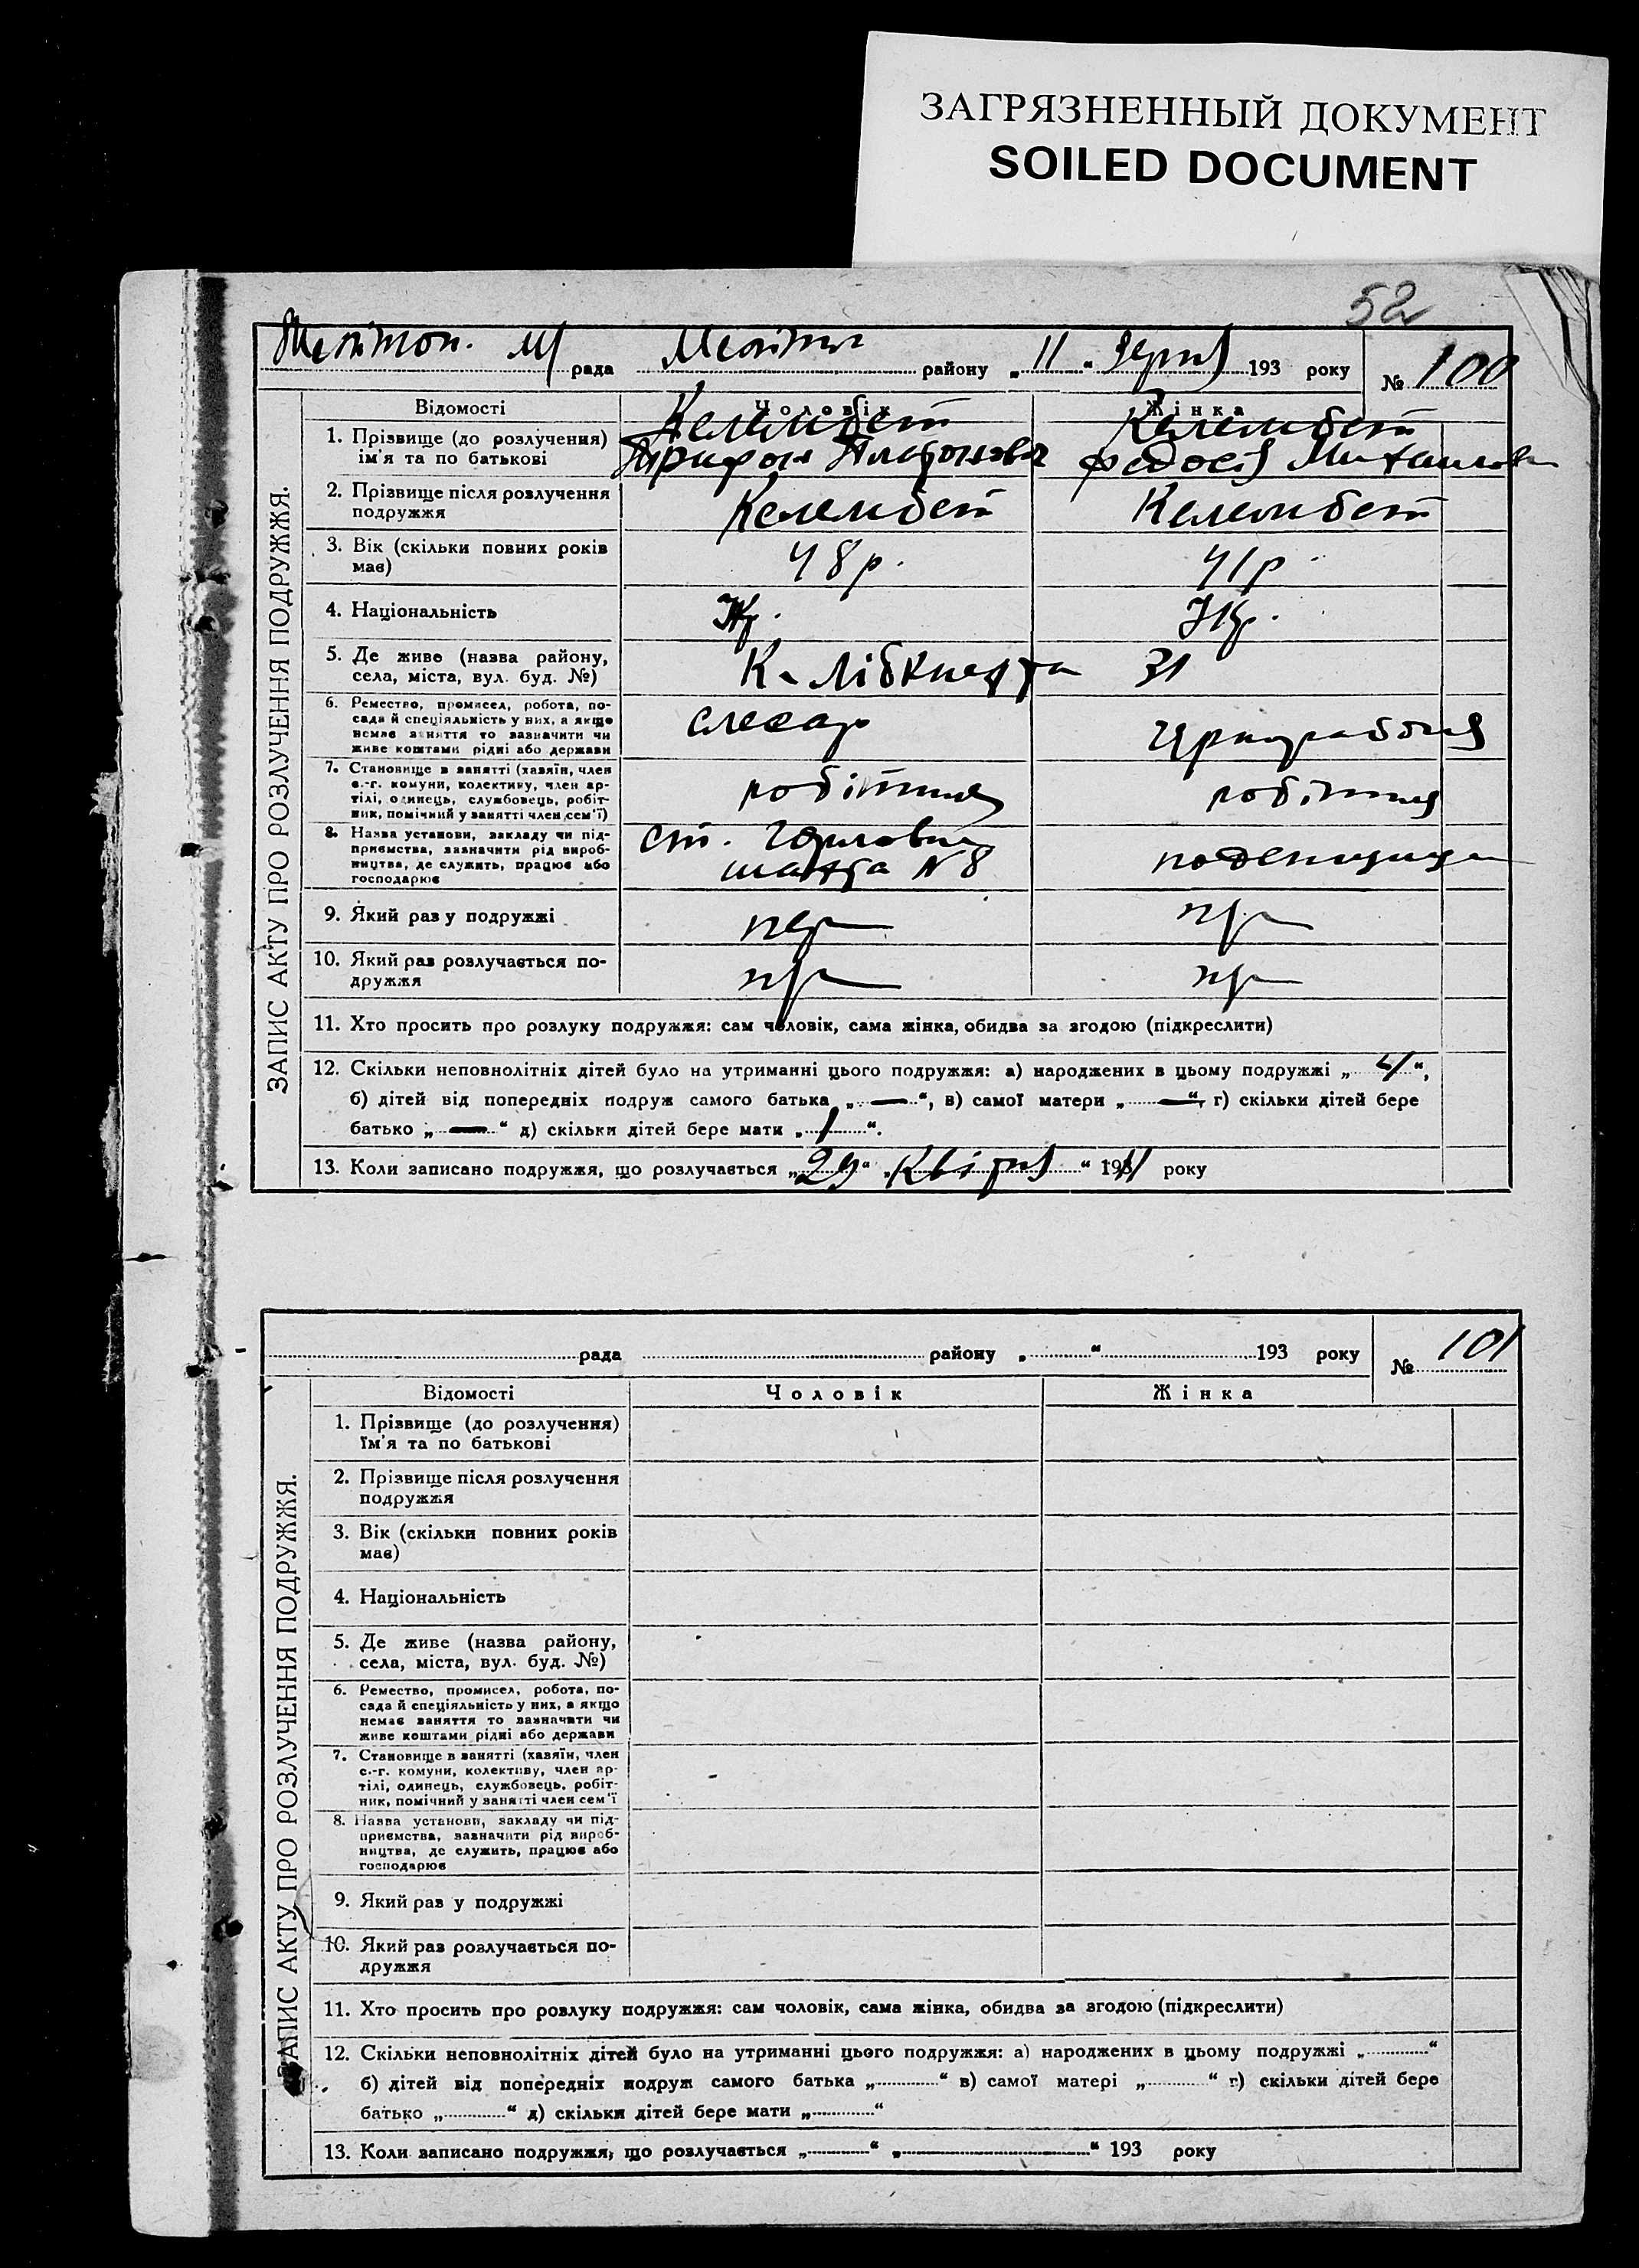 ЗАГРЯЗНЕННЫЙ ДОКУМЕНТ
SOILED DOCUMENT
52
рада району „ 11 “ 193 року № 100
ЗАПИС АКТУ ПРО РОЗЛУЧЕННЯ ПОДРУЖЖЯ.
Відомості Чоловік Жінка
Келембет Келембет
1. Прізвище (до розлучення)
ім'я та по батькові Трифон Платонович Федосія Михайловн
2. Прізвище після розлучення
подружжя Келембет Келембет
3. Вік (скільки повних років
має) 48 р. 41 р.
4. Національність Укр. Укр.
5. Де живе (назва району,
села, міста, вул. буд. №) К. Лібкнехта 31
6. Ремество, промисел, робота, по-
сада й спеціяльність у них, а якщо
немає заняття то зазначити чи
живе коштами рідні або держави
слесар
7. Становище в занятті (хазяїн, член
с.-г. комуни, колективу, член ар-
тілі, одинець, службовець, робіт-
ник, помічний у занятті член сем'ї)
8. Назва установи, закладу чи під-
приємства, зазначити рід вироб-
ництва, де служить, працює або
господарює
ст. Горловка
шахта № 8 поденщица
9. Який раз у подружжі пер
10. Який раз розлучається по-
дружжя
11. Хто просить про розлуку подружжя: сам чоловік, сама жінка, обидва за згодою (підкреслити)
12. Скільки неповнолітніх дітей було на утриманні цього подружжя: а) народжених в цьому подружжі „ “,
б) дітей від попередніх подруж самого батька „ — “, в) самої матери „ — “, г) скільки дітей бере
батько „ — “ д) скільки дітей бере мати „ 1 “.
13. Коли записано подружжя, що розлучається „ 29 “ „ Квітня “ 193 року
рада району „ “ 193 року № 101
ЗАПИС АКТУ ПРО РОЗЛУЧЕННЯ ПОДРУЖЖЯ.
Відомості Чоловік Жінка
1. Прізвище (до розлучення)
ім'я та по батькові
2. Прізвище після розлучення
подружжя
3. Вік (скільки повних років
має)
4. Національність
5. Де живе (назва району,
села, міста, вул. буд. №)
6. Ремество, промисел, робота, по-
сада й спеціяльність у них, а якщо
немає заняття то зазначити чи
живе коштами рідні або держави
7. Становище в занятті (хазяїн, член
с.-г. комуни, колективу, член ар-
тілі, одинець, службовець, робіт-
ник, помічний у занятті член сем'ї
8. Назва установи, закладу чи під-
приємства, зазначити рід вироб-
ництва, де служить, працює або
господарює
9. Який раз у подружжі
10. Який раз розлучається по-
дружжя
11. Хто просить про розлуку подружжя: сам чоловік, сама жінка, обидва за згодою (підкреслити)
12. Скільки неповнолітніх дітей було на утриманні цього подружжя: а) народжених в цьому подружжі „ “
б) дітей від попередніх подруж самого батька „ “ в) самої матері „ “ г) скільки дітей бере
батько „ “ д) скільки дітей бере мати „ “
13. Коли записано подружжя, що розлучається „ “ „ “ 193 року